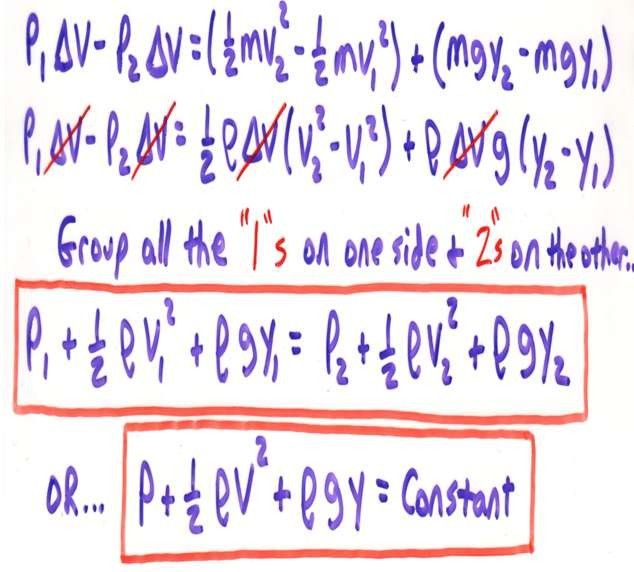 P₁ΔV - P₂ΔV = (½mv₂² - ½mv₁²) + (mgy₂ - mgy₁)
P₁ΔV - P₂ΔV = ½ρΔV(v₂² - v₁²) + ρΔVg(y₂ - y₁)
Group all the "1"s on one side + "2"s on the other..
P₁ + ½ρv₁² + ρgy₁ = P₂ + ½ρv₂² + ρgy₂
OR... P + ½ρv² + ρgy = Constant